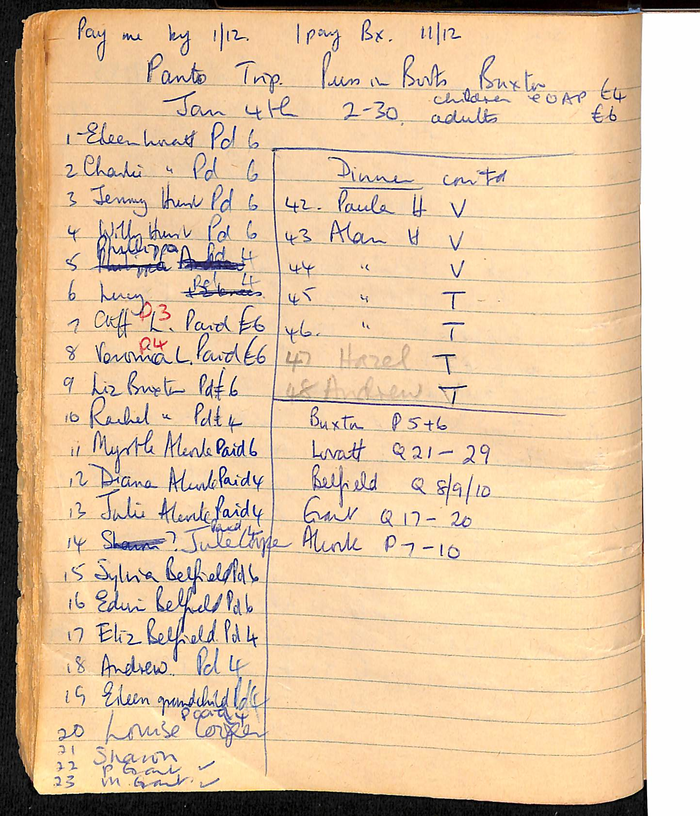 Pay me by 1/12. I pay Bx. 11/12
Panto Trip. Puss in Boots Buxton
Jan 4th 2-30. children & OAP £4
adults £6
1 Eileen Lovatt Pd 6
2 Charlie " Pd 6
3 Jenny Hunt Pd 6
4 Willy Hunt Pd 6
5 Philippa A Pd 4
6 Lucy Pd 4
P3
7 Cliff L. Paid £6
P4
8 Veronica L. Paid £6
9 Liz Buxton Pd £6
10 Rachel " Pd £4
11 Myrtle Alcock Paid 6
12 Diana Alcock Paid 4
13 Julie Alcock Paid 4
14 Sharon ? Julie Cooper Paid 4
15 Sylvia Belfield Pd 6
16 Edwin Belfield Pd 6
17 Eliz Belfield Pd 4
18 Andrew. Pd 4
19 Eileen grandchild Pd 4
20 Louise Cooper Paid 4
21 Sharon
22 P Grant ✓
23 M. Grant. ✓
Dinner contd
42. Paula H V
43 Alan H V
44 " V
45 " T
46. " T
47 Hazel T
48 Andrew T
Buxton P 5+6
Lovatt Q 21 - 29
Belfield Q 8/9/10
Grant Q 17 - 20
Alcock P 7 - 10